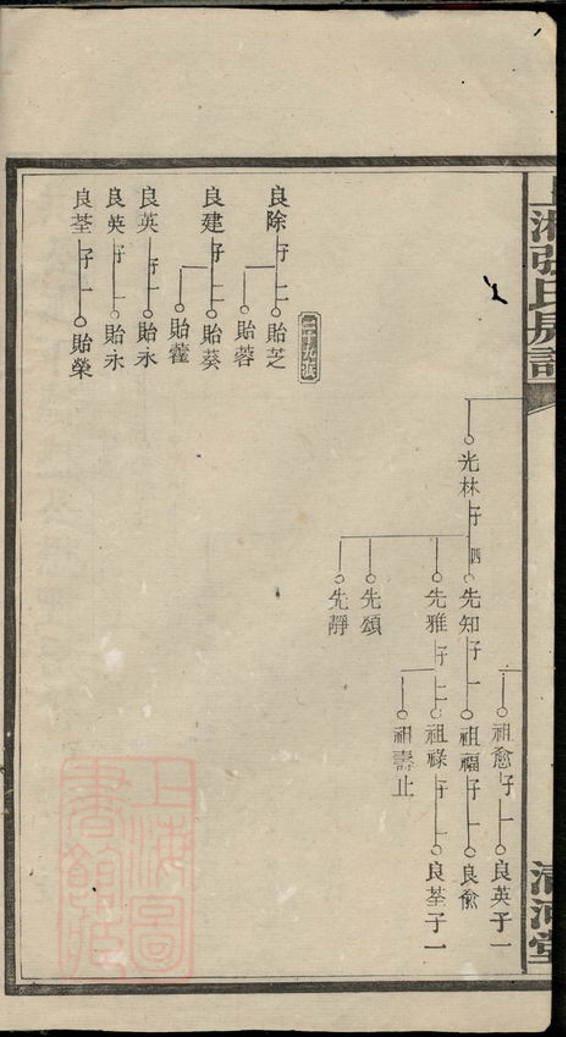 上湘張氏房譜
清河堂
祖愈子一良英子一
光林子四先知子一祖福子一良愈
先雅子二祖祿子一良荃子一
祖壽止
先頌
先靜
二十九派
良除子二貽芝
貽蓉
良建子二貽葵
貽藿
良英子一貽永
良英子一貽永
良荃子一貽榮
上海圖書館藏